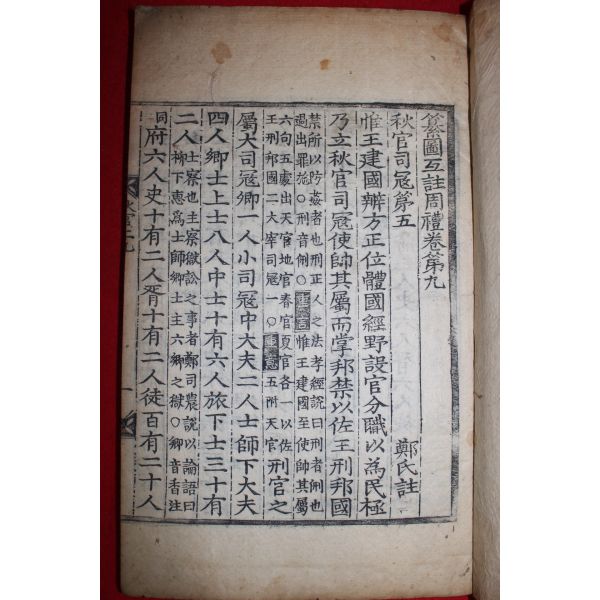 纂圖互註周禮卷第九
秋官司寇第五
鄭氏註
惟王建國辨方正位體國經野設官分職以為民極
乃立秋官司寇使帥其屬而掌邦禁以佐王刑邦國
禁所以防姦者也刑正人之法孝經說曰刑者侀也
過出罪施○刑音侀○重言惟王建國至使帥其屬
六向五處出天官地官春官夏官各一以佐
王刑邦國二大宰司寇一○重意五附天官
刑官之
屬大司寇卿一人小司寇中大夫二人士師下大夫
四人鄉士上士八人中士十有六人旅下士三十有
二人
士察也主察獄訟之事者鄭司農說以論語曰
柳下惠為士師鄉士主六鄉之獄○鄉音香注
同
府六人史十有二人胥十有二人徒百有二十人